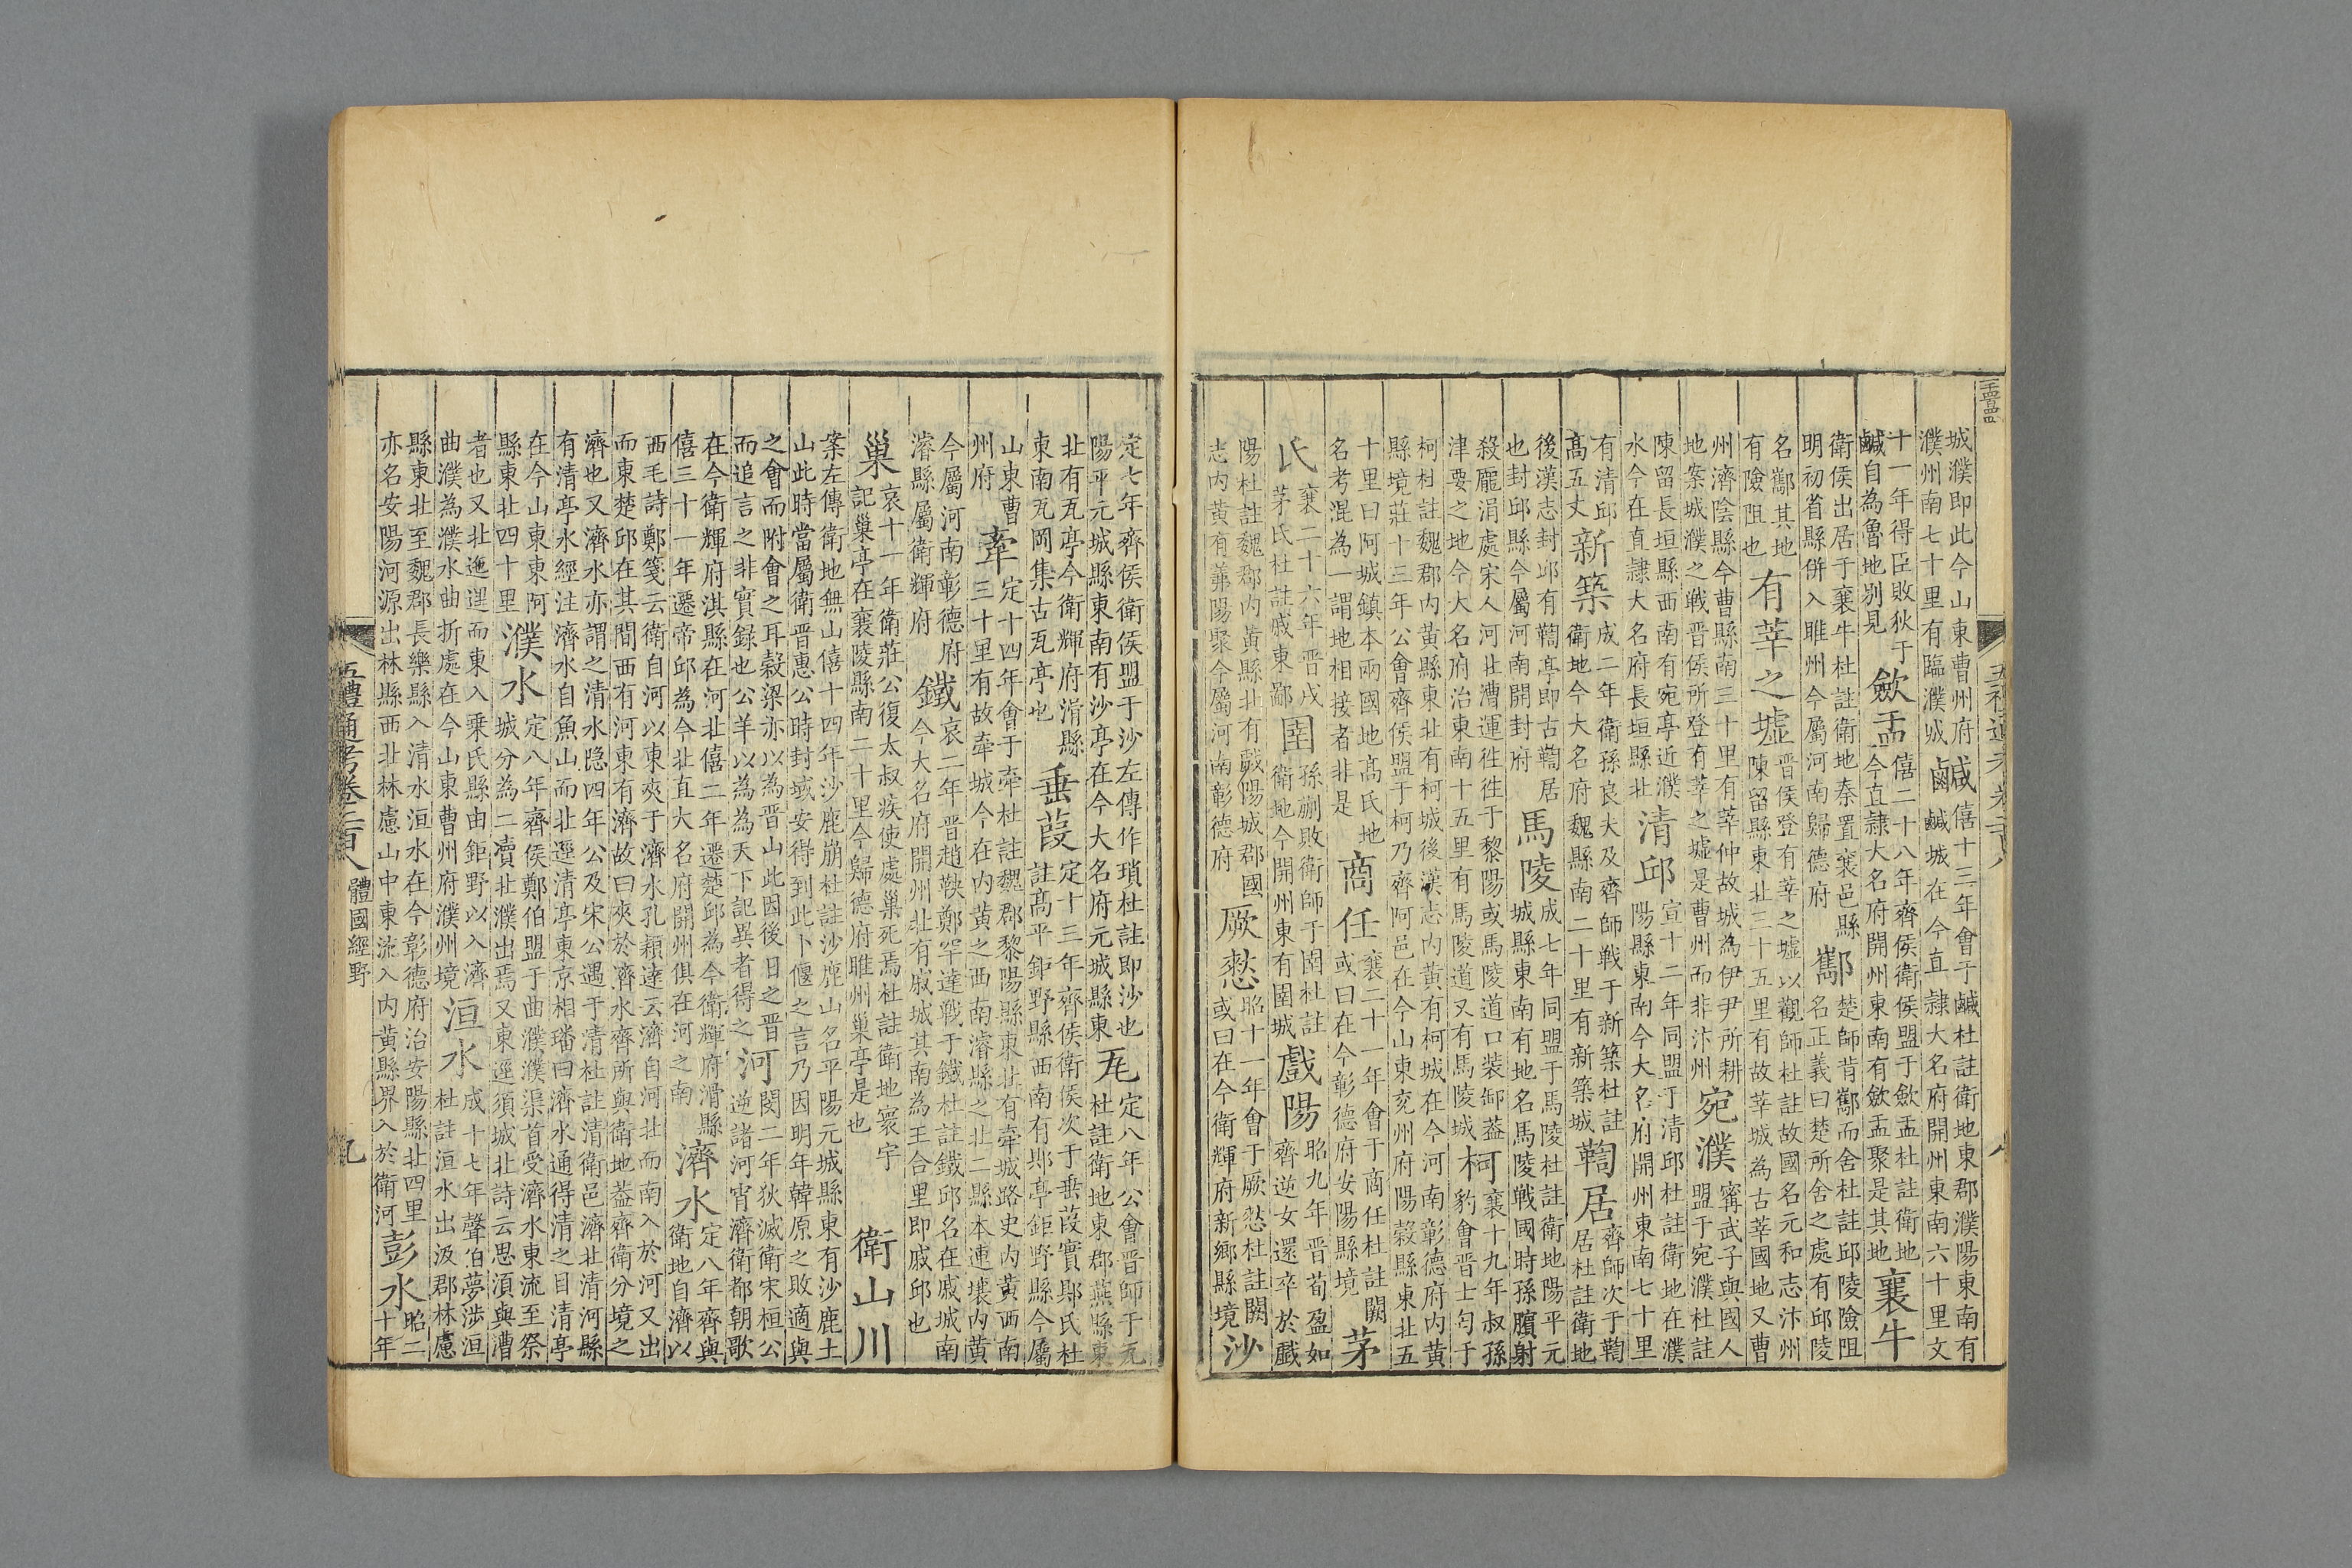 城濮即此今山東曹州府
濮州南七十里有臨濮城
鹹
僖十三年會于鹹杜註衛地東郡濮陽東南有
鹹城在今直隷大名府開州東南六十里文
十一年得臣敗狄于
鹹自為魯地别見
歛盂
僖二十八年齊侯衛侯盟于歛盂杜註衛地
今直隷大名府開州東南有歛盂聚是其地
襄牛
衛侯出居于襄牛杜註衛地秦置襄邑縣
明初省縣併入睢州今屬河南歸德府
酅
楚師背酅而舍杜註邱陵險阻
名正義曰楚所舍之處有邱陵
名酅其地
有險阻也
有莘之墟
晋侯登有莘之墟以觀師杜註故國名元和志汴州
陳留縣東北三十五里有故莘城為古莘國地又曹
州濟陰縣今曹縣南三十里有莘仲故城為伊尹所耕
地案城濮之戰晋侯所登有莘之墟是曹州而非汴州
宛濮
甯武子與國人
盟于宛濮杜註
陳留長垣縣西南有宛亭近濮
水今在直隷大名府長垣縣北
清邱
宣十二年同盟于清邱杜註衛地在濮
陽縣東南今大名府開州東南七十里
有清邱
高五丈
新築
成二年衛孫良夫及齊師戰于新築杜註
衛地今大名府魏縣南二十里有新築城
鞫居
齊師次于鞫
居杜註衛地
後漢志封邱有鞫亭即古鞫居
也封邱縣今屬河南開封府
馬陵
成七年同盟于馬陵杜註衛地陽平元
城縣東南有地名馬陵戰國時孫臏射
殺龐涓處宋人河北漕運徃徃于黎陽或馬陵道口裝卸葢
津要之地今大名府治東南十五里有馬陵道又有馬陵城
柯
襄十九年叔孫
豹會晋士匄于
柯杜註魏郡内黄縣東北有柯城後漢志内黄有柯城在今河南彰德府内黄
縣境莊十三年公會齊侯盟于柯乃齊阿邑在今山東兖州府陽榖縣東北五
十里曰阿城鎮本兩國地高氏地
名考混為一謂地相接者非是
商任
襄二十一年會于商任杜註闕
或曰在今彰德府安陽縣境
茅
氏
襄二十六年晋戍
茅氏杜註戚東鄙
圉
孫蒯敗衛師于圉杜註
衛地今開州東有圉城
戲陽
昭九年晋荀盈如
齊逆女還卒於戲
陽杜註魏郡内黄縣北有戲陽城郡國
志内黄有羛陽聚今屬河南彰德府
厥憖
昭十一年會于厥憖杜註闕
或曰在今衛輝府新鄉縣境
沙
定七年齊侯衛侯盟于沙左傳作瑣杜註即沙也
陽平元城縣東南有沙亭在今大名府元城縣東
瓦
定八年公會晋師于瓦
杜註衛地東郡燕縣東
北有瓦亭今衛輝府滑縣
東南瓦岡集古瓦亭也
垂葭
定十三年齊侯衛侯次于垂葭實郹氏杜
註高平鉅野縣西南有郹亭鉅野縣今屬
山東曹
州府
牽
定十四年會于牽杜註魏郡黎陽縣東北有牽城路史内黄西南
三十里有故牽城今在内黄之西南濬縣之北二縣本連壤内黄
今屬河南彰德府
濬縣屬衛輝府
鐵
哀二年晋趙鞅鄭罕達戰于鐵杜註鐵邱名在戚城南
今大名府開州北有戚城其南為王合里即戚邱也
巢
哀十一年衛莊公復太叔疾使處巢死焉杜註衛地寰宇
記巢亭在襄陵縣南二十里今歸德府睢州巢亭是也
衛山川
案左傳衛地無山僖十四年沙鹿崩杜註沙鹿山名平陽元城縣東有沙鹿土
山此時當屬衛晋惠公時封域安得到此卜偃之言乃因明年韓原之敗適與
之會而附會之耳榖梁亦以為晋山此因後日之晋
而追言之非實録也公羊以為為天下記異者得之
河
閔二年狄滅衛宋桓公
逆諸河宵濟衛都朝歌
在今衛輝府淇縣在河北僖二年遷楚邱為今衛輝府滑縣
僖三十一年遷帝邱為今北直大名府開州俱在河之南
濟水
定八年齊與
衛地自濟以
西毛詩鄭箋云衛自河以東夾于濟水孔穎達云濟自河北而南入於河又出
而東楚邱在其間西有河東有濟故曰夾於濟水齊所與衛地葢齊衛分境之
濟也又濟水亦謂之清水隐四年公及宋公遇于清杜註清衛邑濟北清河縣
有清亭水經注濟水自魚山而北逕清亭東京相璠曰濟水通得清之目清亭
在今山東東阿
縣東北四十里
濮水
定八年齊侯鄭伯盟于曲濮濮渠首受濟水東流至祭
城分為二瀆北濮出焉又東逕須城北詩云思湏與漕
者也又北迤逕而東入乗氏縣由鉅野以入濟
曲濮為濮水曲折處在今山東曹州府濮州境
洹水
成十七年聲伯夢涉洹
杜註洹水出汲郡林慮
縣東北至魏郡長樂縣入清水洹水在今彰德府治安陽縣北四里
亦名安陽河源出林縣西北林慮山中東流入内黄縣界入於衛河
彭水
昭二
十年
五禮通考卷二百八
體國經野
九